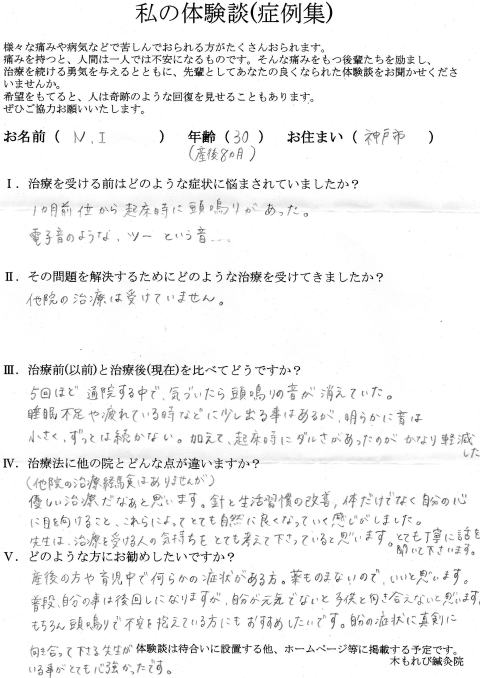 私の体験談(症例集)
様々な痛みや病気などで苦しんでおられる方がたくさんおられます。
痛みを持つと、人間は一人では不安になるものです。そんな痛みをもつ後輩たちを励まし、
治療を続ける勇気を与えるとともに、先輩としてあなたの良くなられた体験談をお聞かせくださ
いませんか。
希望をもてると、人は奇跡のような回復を見せることもあります。
ぜひご協力お願いいたします。
お名前( N.I ) 年齢(30) お住まい(神戸市)
(産後8ヵ月)
Ⅰ.治療を受ける前はどのような症状に悩まされていましたか?
1ヵ月前位から起床時に頭鳴りがあった。
電子音のような、ツー という音...
Ⅱ.その問題を解決するためにどのような治療を受けてきましたか?
他院の治療は受けていません。
Ⅲ.治療前(以前)と治療後(現在)を比べてどうですか?
5回ほど通院する中で、気づいたら頭鳴りの音が消えていた。
睡眠不足や疲れている時などに少し出る事はあるが、明らかに音は
小さく、ずっとは続かない。加えて、起床時にダルさがあったのが かなり軽減
した
Ⅳ.治療法に他の院とどんな点が違いますか?
(他院の治療経験はありませんが)
優しい治療だなぁと思います。針と生活習慣の改善、体だけでなく自分の心
に目を向けること、これらによってとても自然に良くなっていく感じがしました。
先生は、治療を受ける人の気持ちをとても考えて下さっていると思います。とても丁寧に話を
聞いて下さいます。
Ⅴ.どのような方にお勧めしたいですか?
産後の方や育児中で何らかの症状がある方。薬ものまないので、いいと思います。
普段、自分の事は後回しになりますが、自分が元気でないと子供と向き合えないと思います。
もちろん頭鳴りで不安を抱えている方にもおすすめしたいです。自分の症状に真剣に
向き合って下さる先生が
いる事がとても心強かったです。
体験談は待合いに設置する他、ホームページ等に掲載する予定です。
木もれび鍼灸院